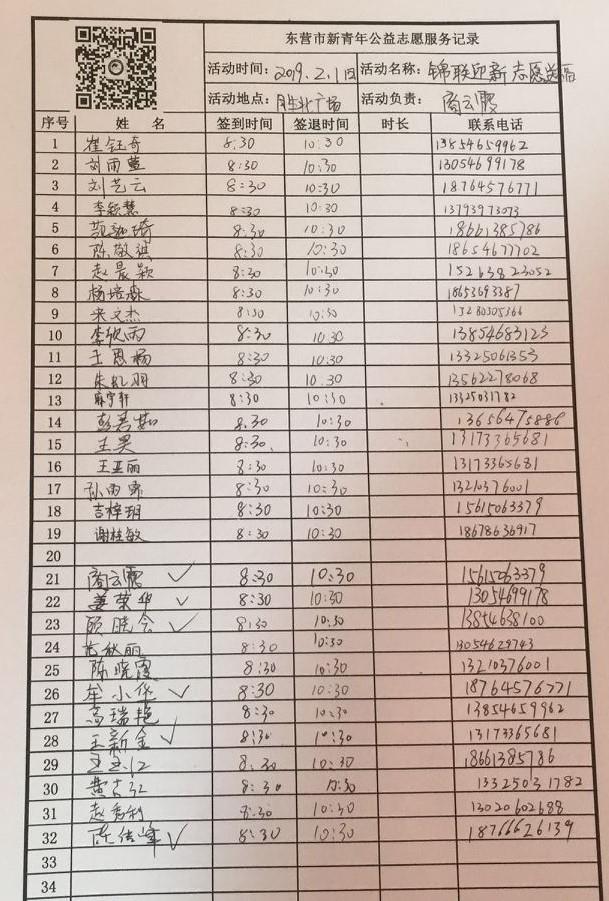 东营市新青年公益志愿服务记录
活动时间: 2019.2.1日 活动名称: 锦联迎新志愿送福
活动地点: 胜北广场 活动负责: 商云霞
序号 姓 名 签到时间 签退时间 时长 联系电话
1 崔钰奇 8:30 10:30 13854659962
2 刘雨萱 8:30 10:30 13054699178
3 刘艺云 8:30 10:30 18764576771
4 李颖慧 8:30 10:30 13793973073
5 8:30 10:30 18661385786
6 陈敬祺 8:30 10:30 18654677702
7 赵晨颖 8:30 10:30 15263823052
8 杨培森 8:30 10:30 18653693387
9 宋文杰 8:30 10:30 15280305366
10 李欣雨 8:30 10:30 13854683123
11 王恩杨 8:30 10:30 13325061353
12 朱虹羽 8:30 10:30 13562278068
13 麻宇轩 8:30 10:30 13325031782
14 彭若茹 8.30 10:30 13656475886
15 王昊 8:30. 10:30 13173365681
16 王亚丽 8:30 10:30 13173365681
17 孙雨霏 8:30 10:30 13210376001
18 吉梓玥 8:30 10:30 15615063379
19 谢桂敏 8:30 10:30 18678636917
20
21 商云霞 ✓ 8:30 10:30 15615063379
22 姜荣华 ✓ 8:30 10:30 13054699178
23 顾晓会 ✓ 8:30 10:30 13854638100
24 8:30 10:30 13054629743
25 陈晓霞 8:30 10:30 13210376001
26 牟小华 ✓ 8:30 10:30 18764576771
27 高瑞艳 8:30 10:30 13854659962
28 王新金 ✓ 8:30 10:30 13173365681
29 8:30 10:30 18661385786
30 黄吉红 8:30 10:30 13325031782
31 赵秀利 8:30 10:30 13020602688
32 陈佳峰 ✓ 8:30 10:30 18766626139
33
34